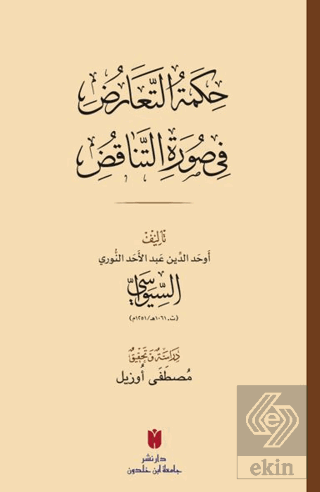 حِكمَةُ التَّعَارُضِ
فِي صُورَةِ التَّنَاقُضِ
تَأليفُ
أوحَد الدِّين عَبد الأحَد النُّوري
السِّيوَاسيّ
(ت. ١٠٦١هـ/١٢٥١م)
دِرَاسَةٌ وَتَحقِيقٌ
مُصطَفَى أُوزيل
دار نشر
جامعة ابن خلدون
ekin